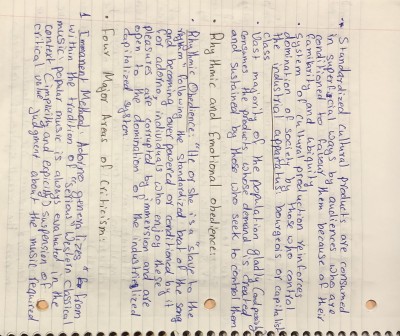 • Standardized cultural products are consumed
in superficial ways by audiences who are
conditioned to favour them because of their
familiarity and ubiquity
System of cultural production reinforces
domination of society by those who control
the industrial apparatus: bourgeois or capitalist
class
• Vast majority of the population gladly and passively
consumes the products, whose demand is created
and sustained by those who seek to control them
• Rhythmic and Emotional obedience:
• Rhythmic Obedience: "He or she is a "slave to the
rhythm", following the standardized beat of the song
and becoming over powered or conditioned by it
for adorno individuals who enjoy these
pleasures are corrupted by immersion and are
open to the domination of the industrialized
capitalized system
• Four Major Areas of Criticism:
1 Immanent Method: Adorno generalizes "far from
within the tradition of "serious" Western classical
music", popular music is always evaluated in the
context (implicitly and explicitly) suspension of
critical value judgment about the music required